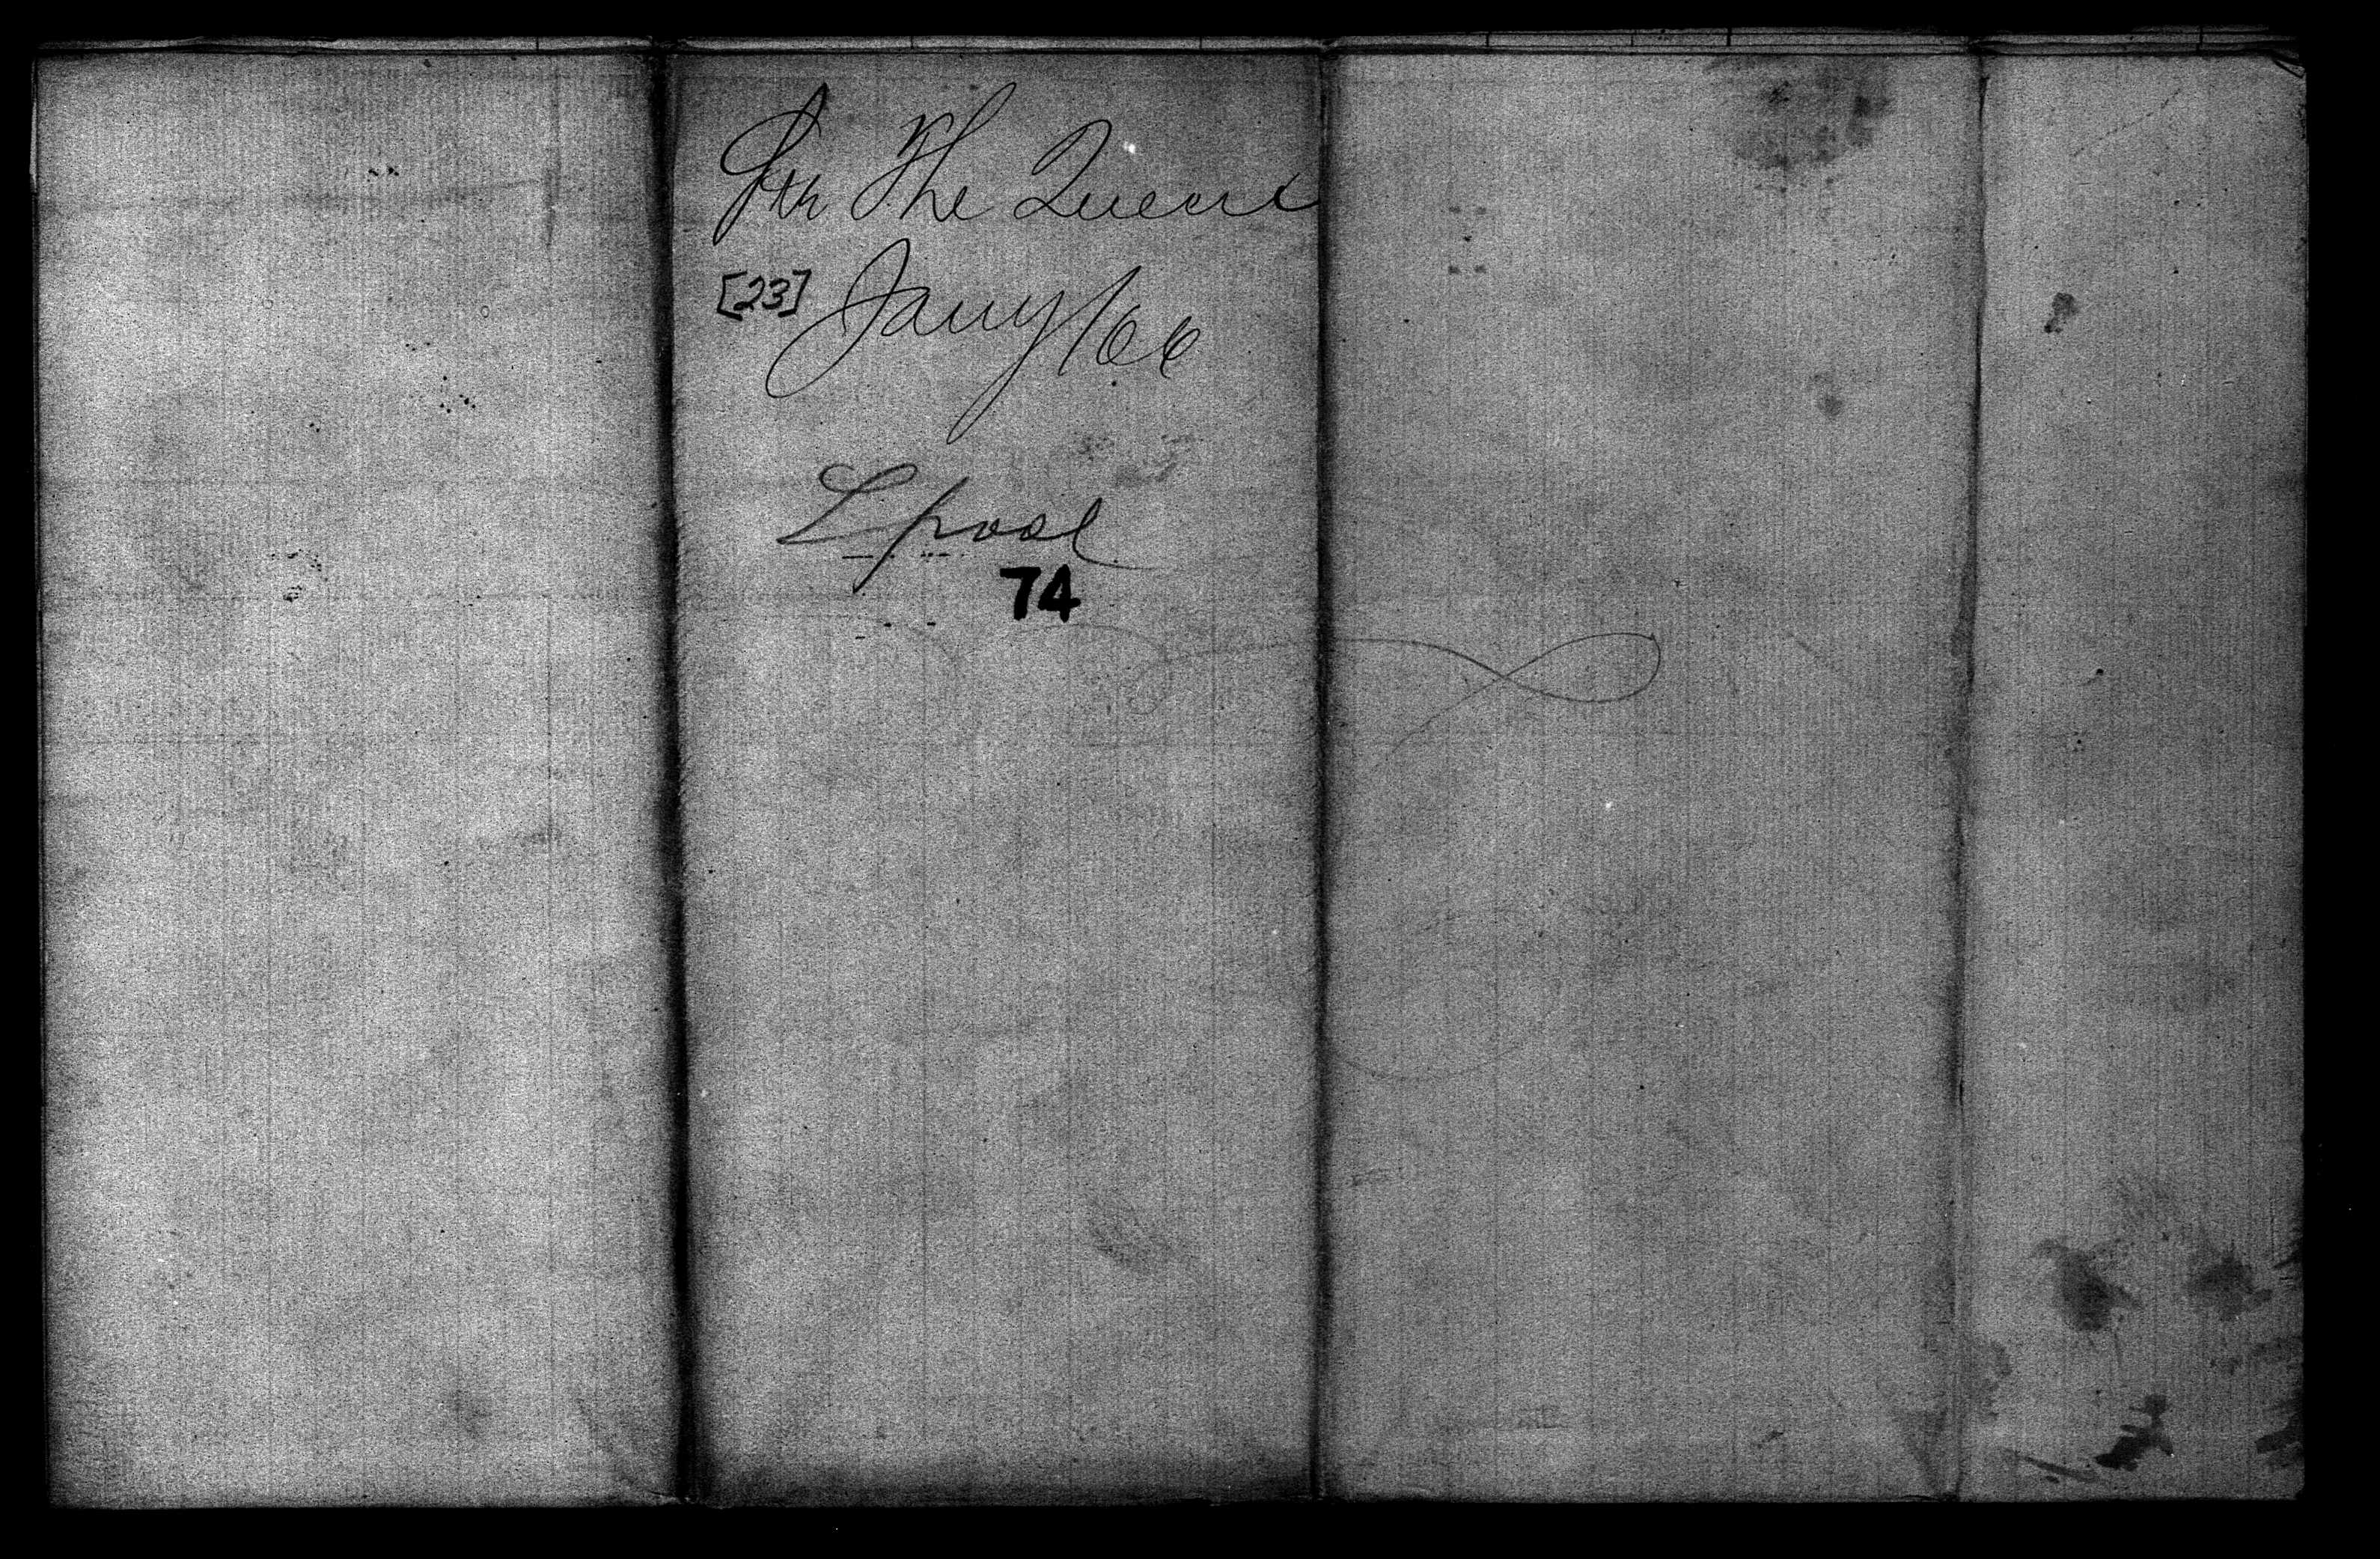 Str The Queen
[23] Jany/66
Lpool
74